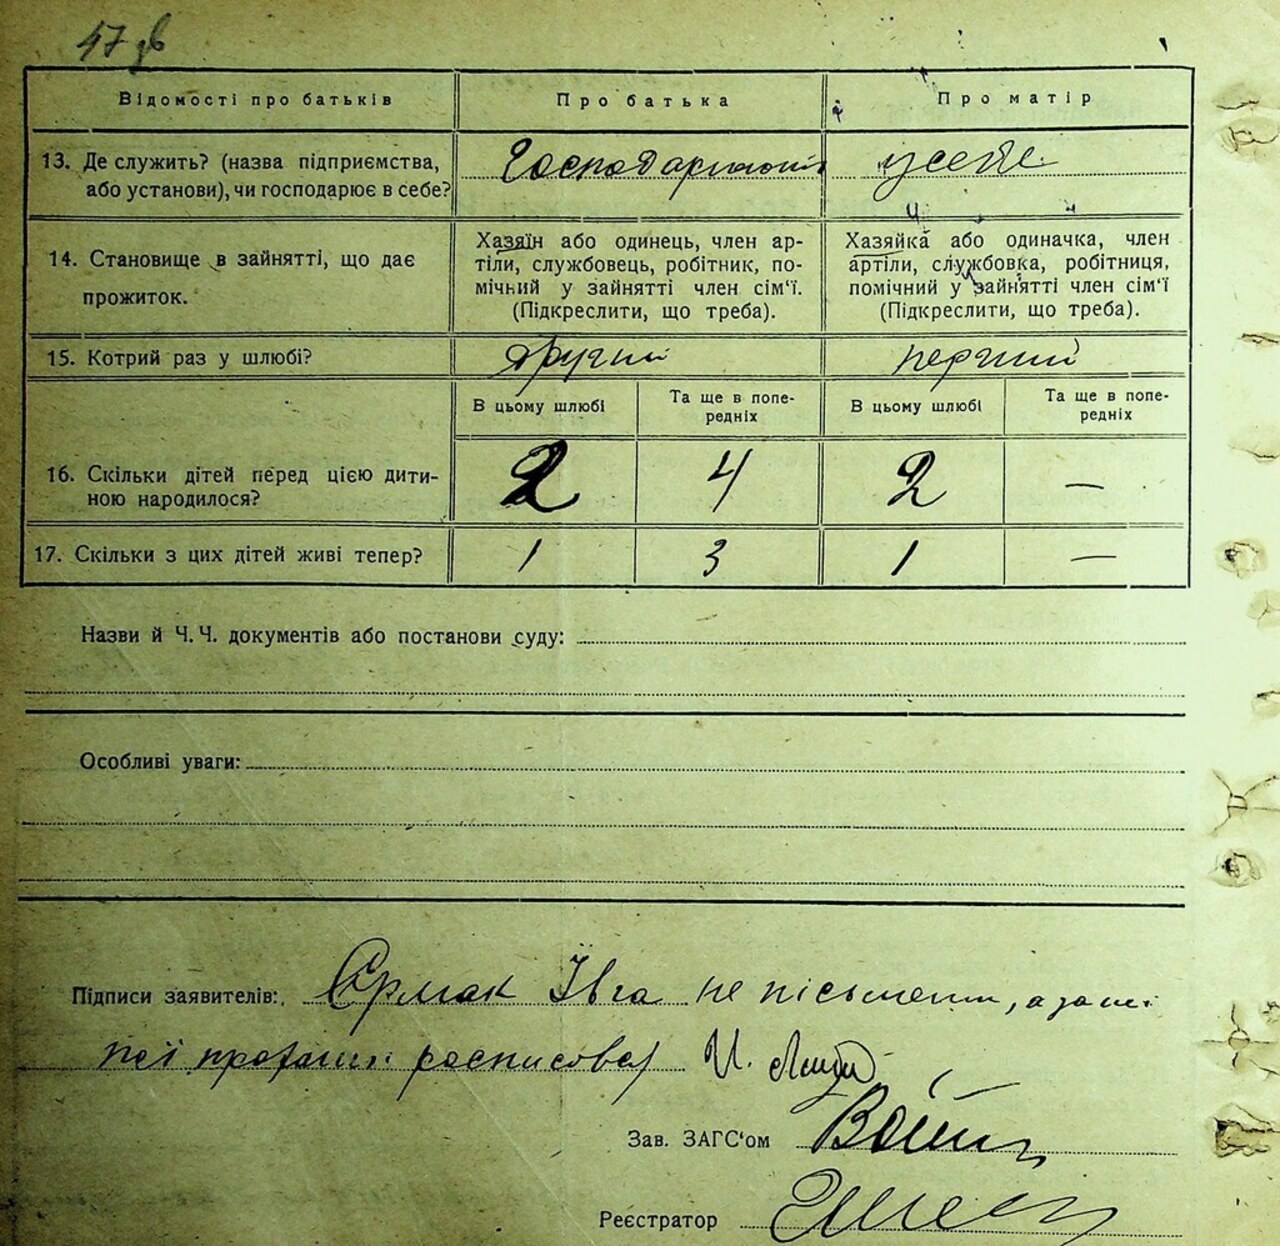 47 зв
Відомості про батьків
Про батька
Про матір
13. Де служить? (назва підприємства, або установи), чи господарює в себе?
Господарюют
усебе
14. Становище в зайнятті, що дає прожиток.
Хазяїн або одинець, член ар-
тіли, службовець, робітник, по-
мічний у зайнятті член сім'ї.
(Підкреслити, що треба).
Хазяйка або одиначка, член
артіли, службовка, робітниця,
помічний у зайнятті член сім'ї
(Підкреслити, що треба).
15. Котрий раз у шлюбі?
другий
перший
В цьому шлюбі
Та ще в попе-
редніх
В цьому шлюбі
Та ще в попе-
редніх
16. Скільки дітей перед цією дити-
ною народилося?
2
4
2
—
17. Скільки з цих дітей живі тепер?
1
3
1
—
Назви й Ч. Ч. документів або постанови суду:
Особливі уваги:
Підписи заявителів: Єрмак Ївга не пісьменни, а за
росписовал И.
Зав. ЗАГС'ом
Реєстратор